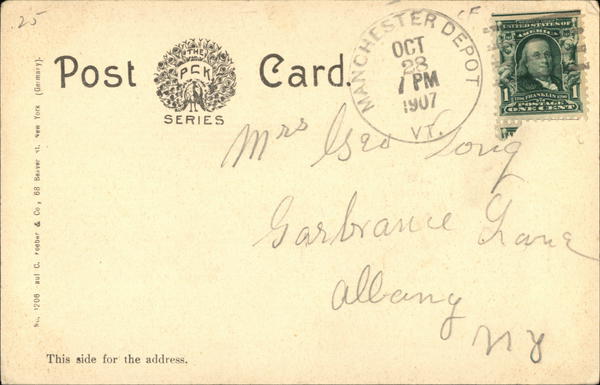 25
Post Card.
THE
P C K
SERIES
MANCHESTER DEPOT
OCT
28
7 PM
1907
VT.
UNITED STATES OF
AMERICA
FRANKLIN
POSTAGE
1 ONE CENT 1
Mrs Geo Long
Garbrance Lane
Albany
NY
No. 1206 aul C. oeber & Co., 68 Beaver st. New York (Germany).
This side for the address.